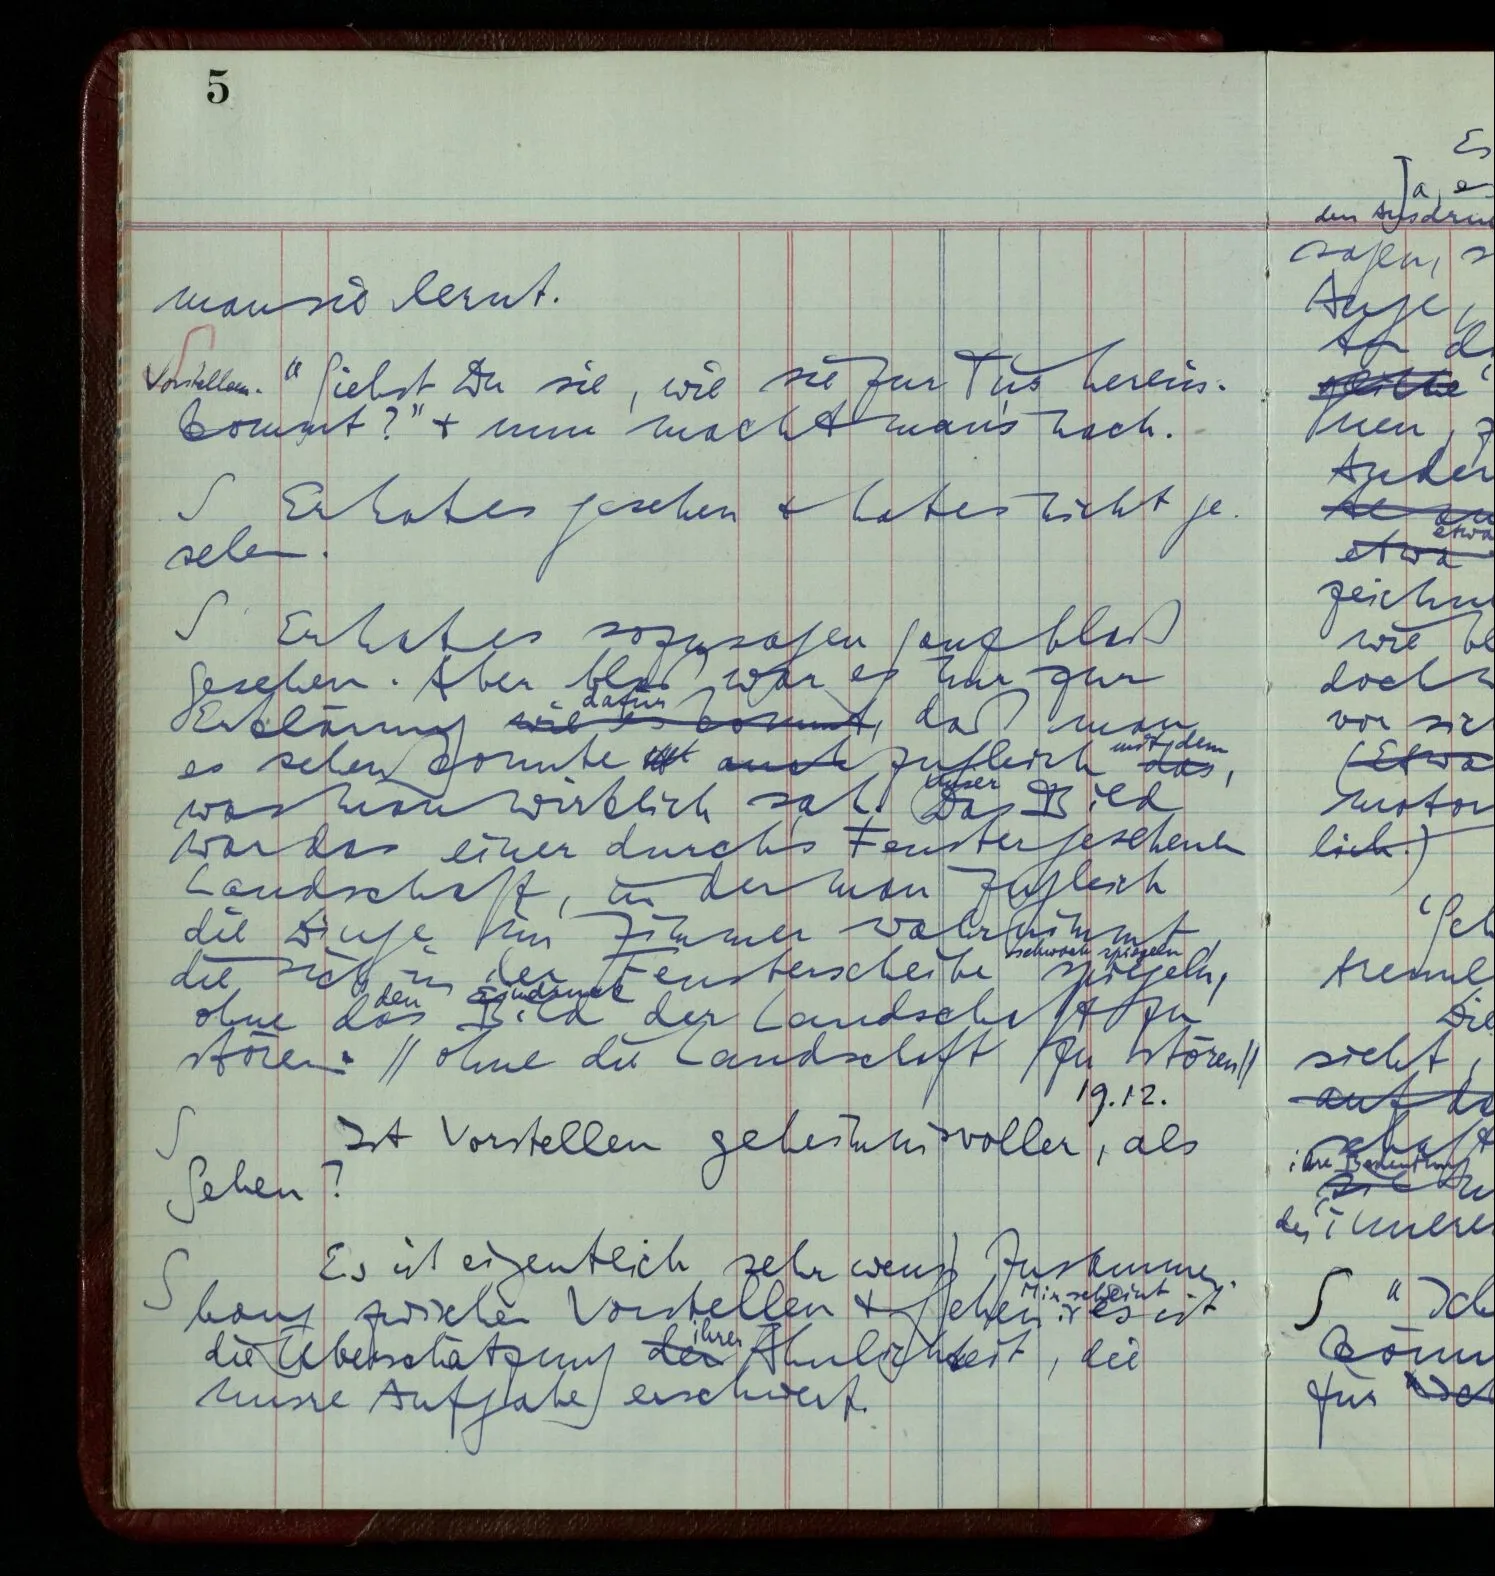 5
man sie lernt.
Vorstellen. "Siehst Du sie, wie sie zur Tür herein-
kommt?" + nun macht man's nach.
∫ Er hat es gesehen + hat es nicht ge-
sehen.
∫ Er hat es sozusagen ganz blaß
gesehen. Aber blaß war es nur zur
dafür
Erklärung wie es kommt, daß man
mit dem
es sehen konnte auch zugleich das,
Unser
was man wirklich sah. Das Bild
war das einer durch's Fenster gesehenen
Landschaft, in der man zugleich
die Dinge im Zimmer wahrnimmt,
schwach spiegeln
die sich in der Fensterscheibe spiegeln,
den Eindruck
ohne das Bild der Landschaft zu
stören. // ohne die Landschaft zu stören //
19.12.
∫ Ist Vorstellen geheimnisvoller, als
Sehen?
∫ Es ist eigentlich sehr wenig Zusammen-
Mir scheint
hang zwischen Vorstellen + Sehen; es ist
ihrer
die Überschätzung der Ähnlichkeit, die
unsre Aufgabe erschwert.
Es
Ja, es
den Ausdruc
sagen, s
Auge,
nen, z
Ander
etwa
etwa
zeichn
wie bl
doch
vor sic
(Etwa
motor
lich.)
"Seh
trennl
Die
sieht,
auf da
schaft
ihre Bedeutung
des innere
∫ "Ich
könn
für